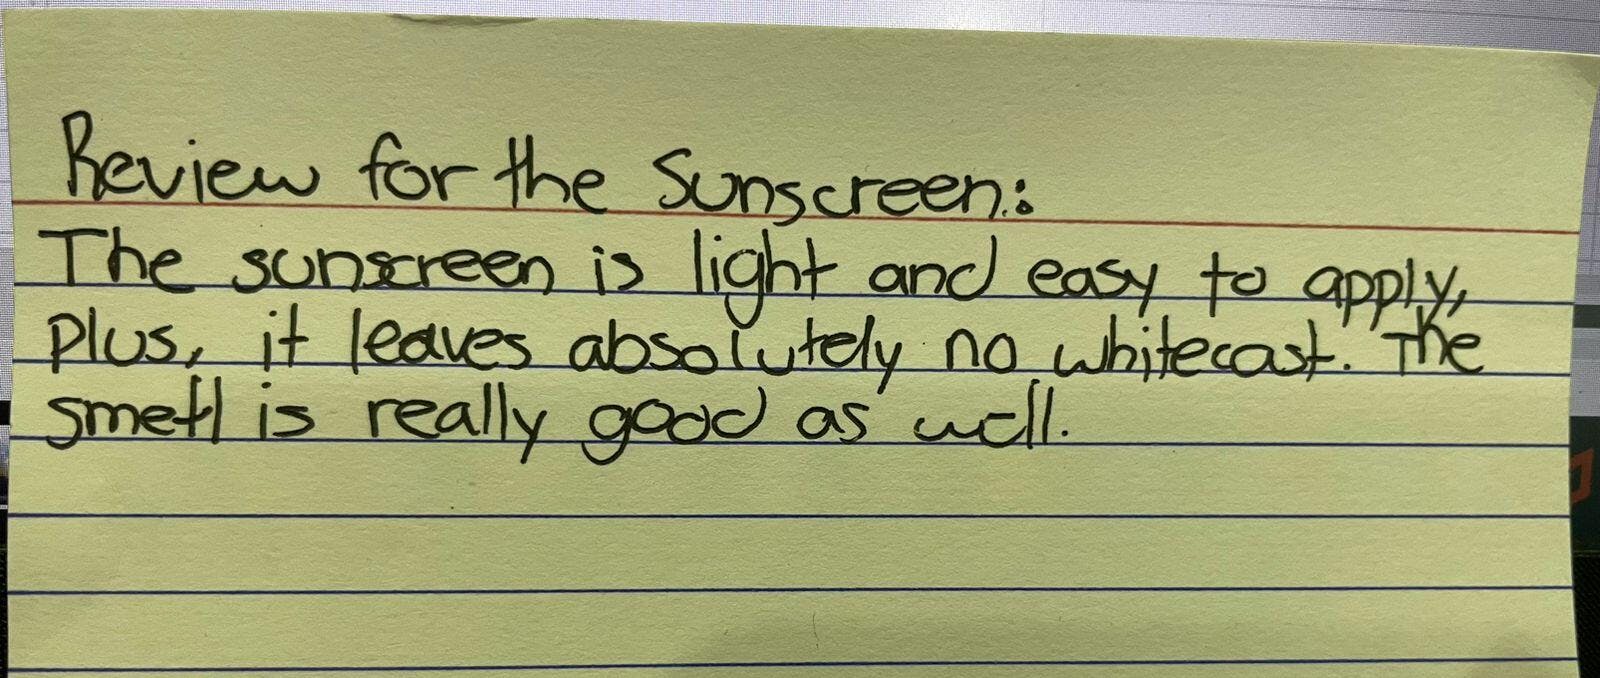 Review for the Sunscreen:
The sunscreen is light and easy to apply,
plus, it leaves absolutely no whitecast. The
smell is really good as well.